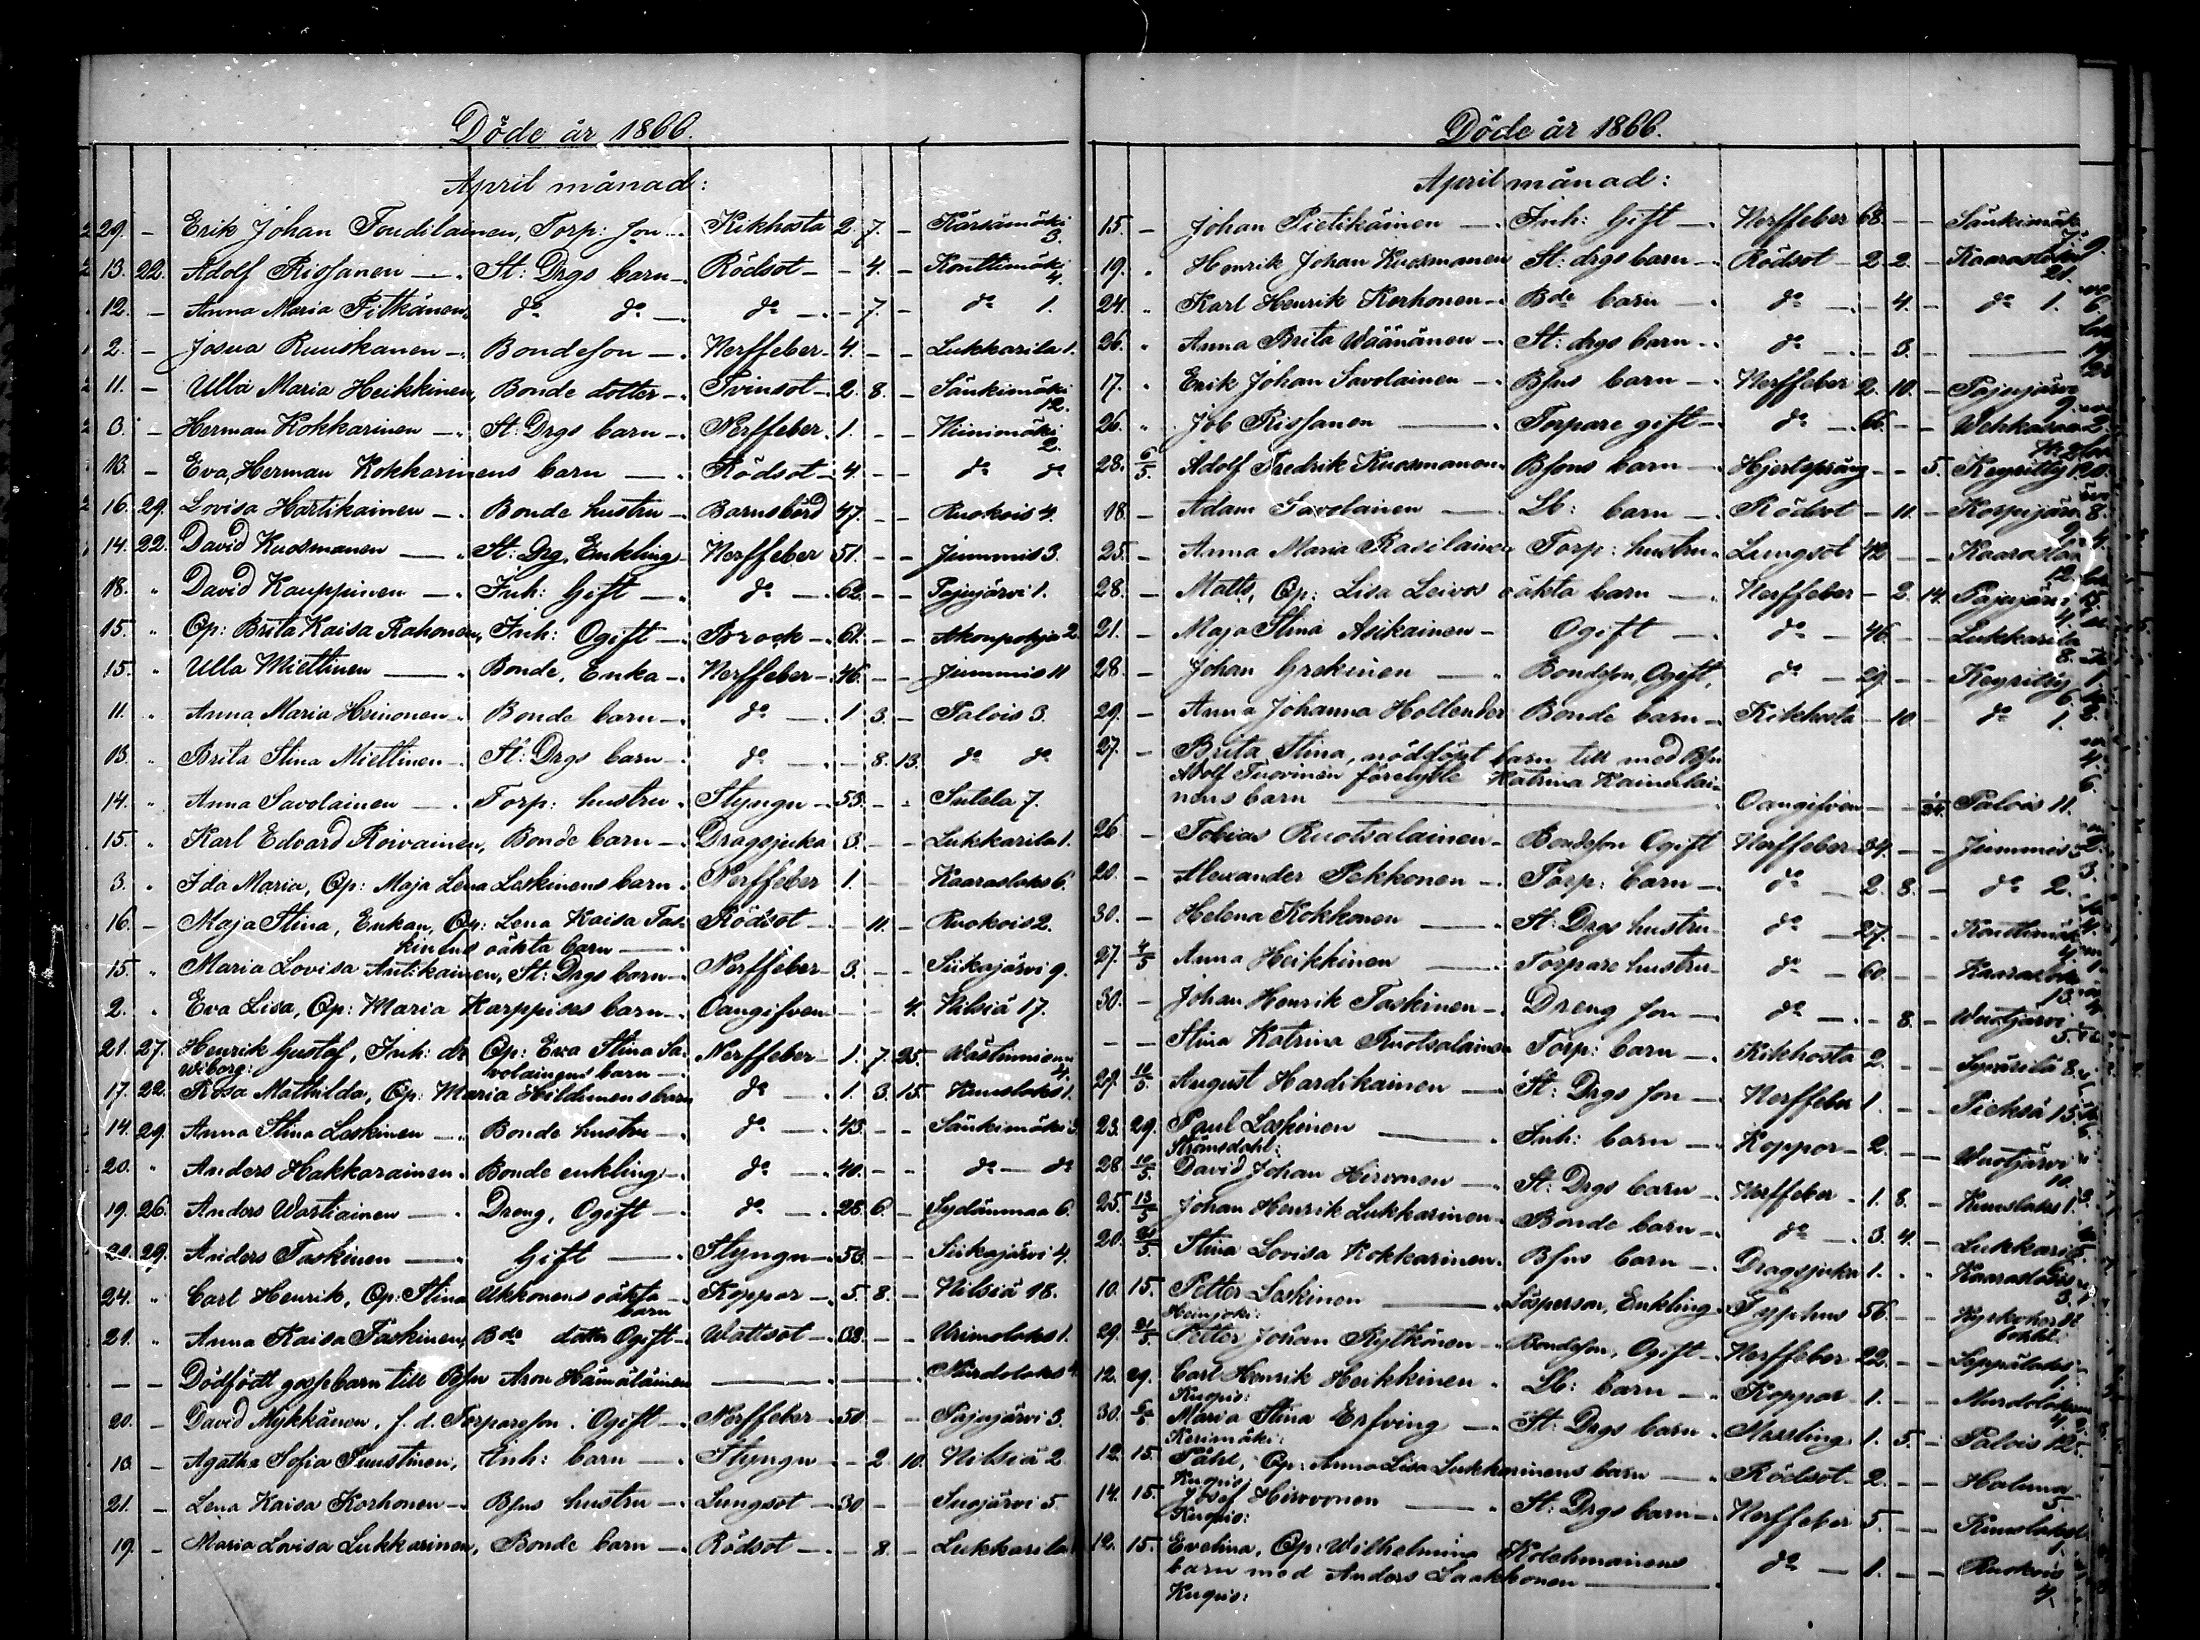 Döde år 1866.
April månad:
29. — Erik Johan Toudilainen, Torp: son — Kikhosta 2. 7. — Kärsämäki 3.
13. 22. Adolf Rissanen — St: Drgs barn — Rödsot — — 4. — Konttimäki 4.
12. — Anna Maria Pitkänen, do do — do — — 7. — do 1.
2. — Josua Ruuskanen — Bondeson — Nerffeber — 4. — — Lukkarila 1.
11. — Ulla Maria Heikkinen, Bonde dotter — Tvinsot — 2. 8. — Sänkimäki 12.
3. — Herman Kokkarinen — St: Drgs barn — Nerffeber. 1. — — Kinimäki 2.
13. — Eva, Herman Kokkarinens barn — Rödsot — 4. — — do do
16. 29. Lovisa Hartikainen — Bonde hustru — Barnsbörd 47. — — Ruokois 4.
14. 22. David Kuosmanen — St: Drg, Enkling Nerffeber 51. — — Jummis 3.
18. " David Kauppinen — Inh: Gift — do — 62. — — Pajujärvi 1.
15. " Qp: Brita Kaisa Rahonen, Inh: Ogift — Brock — 61. — — Akonpohja 2.
15. " Ulla Miettinen — Bonde, Enka — Nerffeber — 46. — — Jummis 11
11. " Anna Maria Heinonen — Bonde barn — do — 1. 3. — Palois 3.
13. " Brita Stina Miettinen — St: Drgs barn — do — — 8. 13. do do
14. " Anna Savolainen — Torp: hustru — Styngn — 53. — — Sutela 7.
15. " Karl Edvard Roivainen, Bonde barn — Dragsjuka 3. — — Lukkarila 1.
3. " Ida Maria, Qp: Maja Lena Laskinens barn. Nerffeber 1. — — Kaaraslaks 6.
16. — Maja Stina, Enkan, Qp: Lena Kaisa Tas- Rödsot — — 11. — Ruokois 2.
kinens oäkta barn —
15. " Maria Lovisa Antikainen, St: Drgs barn — Nerffeber — 3. — — Siikajärvi 9.
2. " Eva Lisa, Qp: Maria Karppises barn — Oangifven — — 4. Nilsiä 17.
21. 27. Henrik Gustaf, Inh: dr Qp: Eva Stina Sa- Nerffeber — 1. 7. 25. Wästinniemi 4.
Wiborg: volainens barn —
17. 22. Rosa Mathilda, Qp: Maria Hildunens barn do — 1. 3. 15. Kumslaks 1.
14. 29. Anna Stina Laskinen — Bonde hustru — do — 43. — — Sänkimäki 3.
20. " Anders Hakkarainen. Bonde enkling — do — 40. — — do — do
19. 26. Anders Wartiainen — Dreng, Ogift — do — 28. 6. — Sydänmaa 6.
20. 29. Anders Taskinen — Gift — Styngn — 56. — — Siikajärvi 4.
24. " Carl Henrik, Qp: Stina Ukkonens oäkta barn Koppor — 5. 8. — Nilsiä 18.
21. " Anna Kaisa Taskinen, Bde dotter Ogift — Wattsot — 33. — — Urimolaks 1.
— — Dödfödt gossebarn till Bfn Aron Hämäläinen — — Murdolaks 4.
20. — David Mykkänen, f. d. Torpareson. Ogift — Nerffeber — 50. — — Pajujärvi 3.
13. — Agatha Sofia Puustinen, Inh: barn — Styngn — — 2. 10. Nilsiä 2.
21. — Lena Kaisa Korhonen — Bfns hustru — Lungsot — 30 — — Suojärvi 5.
19. — Maria Lovisa Lukkarinen, Bonde barn — Rödsot — — 8. — Lukkarila
Döde år 1866.
April månad:
15. — Johan Pietikäinen — Inh: Gift — Nerffeber 68. — — Sänkimäki 7.
19. " Henrik Johan Kuosmanen St: drgs barn — Rödsot — 2. 2. — Kaaraslaks 21.
24. " Karl Henrik Korhonen — Bde barn — do — — 4. — do 1.
26. " Anna Brita Wäänänen — St: drgs barn — do — — 3. —
17. " Erik Johan Savolainen — Bfns barn — Nerffeber 2. 10. — Pajujärvi 9.
26. " Job Rissanen — Torpare gift — do — 66. — — Wehkasaari
28. 6/5. Adolf Fredrik Kuosmanen Bfsns barn — Hjertsprång — — 5. Keyritty
18. — Adam Savolainen — Lb: barn — Rödsot — 11. — Korpijärvi
25. — Anna Maria Rasilainen Torp: hustru. Lungsot 42 — — Kaaraslaks 12.
28. — Matts, Qp: Lisa Leivos oäkta barn — Nerffeber — 2. 14. Pajujärvi 4.
21. — Maja Stina Asikainen — Ogift — do — 46. — — Lukkarila 8.
28. — Johan Grekinen — Bondeson, Ogift, do — 29. — — Keyritty 6.
29. — Anna Johanna Hollender Bonde barn — Kikhosta — 10. — do 1.
27. — Brita Stina, nöddöpt barn till med Bfn
Adolf Tuovinen förelofte Katrina Kainulai-
nens barn — Oangifven — — 1/24. Palois 11.
26. — Tobias Ruotsalainen — Bondeson Ogift Nerffeber 34. — — Jummis 5.
20. — Alexander Pekkonen — Torp: barn — do — 2. 8. — do 2.
30. — Helena Kokkonen — St: Drgs hustru — do — 27. — — Konttimäki
27. 4/5 Anna Heikkinen — Torpare hustru — do — 60. — — Kaaraslaks 13.
30. — Johan Henrik Taskinen — Dreng son — do — — 8. — Wuotjärvi 5.
— — Stina Katrina Ruotsalainen Torp: barn — Kikhosta 2. — — Syvärilä 8.
29. 10/5 August Hardikainen — St: Drgs son — Nerffeber 1. — — Pieksä 15.
23. 29. Paul Laskinen — Inh: barn — Koppor — 2. — — Wuotjärvi 10.
Strömsdahl:
28. 10/5 David Johan Hirvonen — St: Drgs barn — Nerffeber — 1. 8. — Kumslaks 1.
25. 13/5 Johan Henrik Lukkarinen. Bonde barn — do — 3. 4. — Lukkarila
20. 21/5 Stina Lovisa Kokkarinen. Bfns barn — Dragsjuka 1. — — Kaaraslaks 3.
10. 15. Petter Laskinen — Lösperson, Enkling Typhus 56. — — Kyrkoherde bohl:
Heinjoki:
29. 21/5 Petter Johan Rytkönen — Bondeson, Ogift — Nerffeber — 22. — — Leppälaks 1.
12. 29. Carl Henrik Heikkinen. Lb: barn — Koppor — 1. — — Murdolaks 4.
Kuopio:
30. 5/5 Maria Stina Erfving — St: Drgs barn. Messling 1. 5. — Palois 12.
Kerimäki:
12. 15. Påhl, Qp: Anna Lisa Lukkarinens barn — Rödsot — 2. — — Haluna 5
Kuopio:
14. 15. Josef Hirvonen — St: Drgs barn — Nerffeber 5. — — Kumslaks 1.
Kuopio:
12. 15. Evelina, Qp: Wilhelmina Kolehmainens do — 1. — — Ruokois 4.
barn med Anders Laakkonen —
Kuopio: